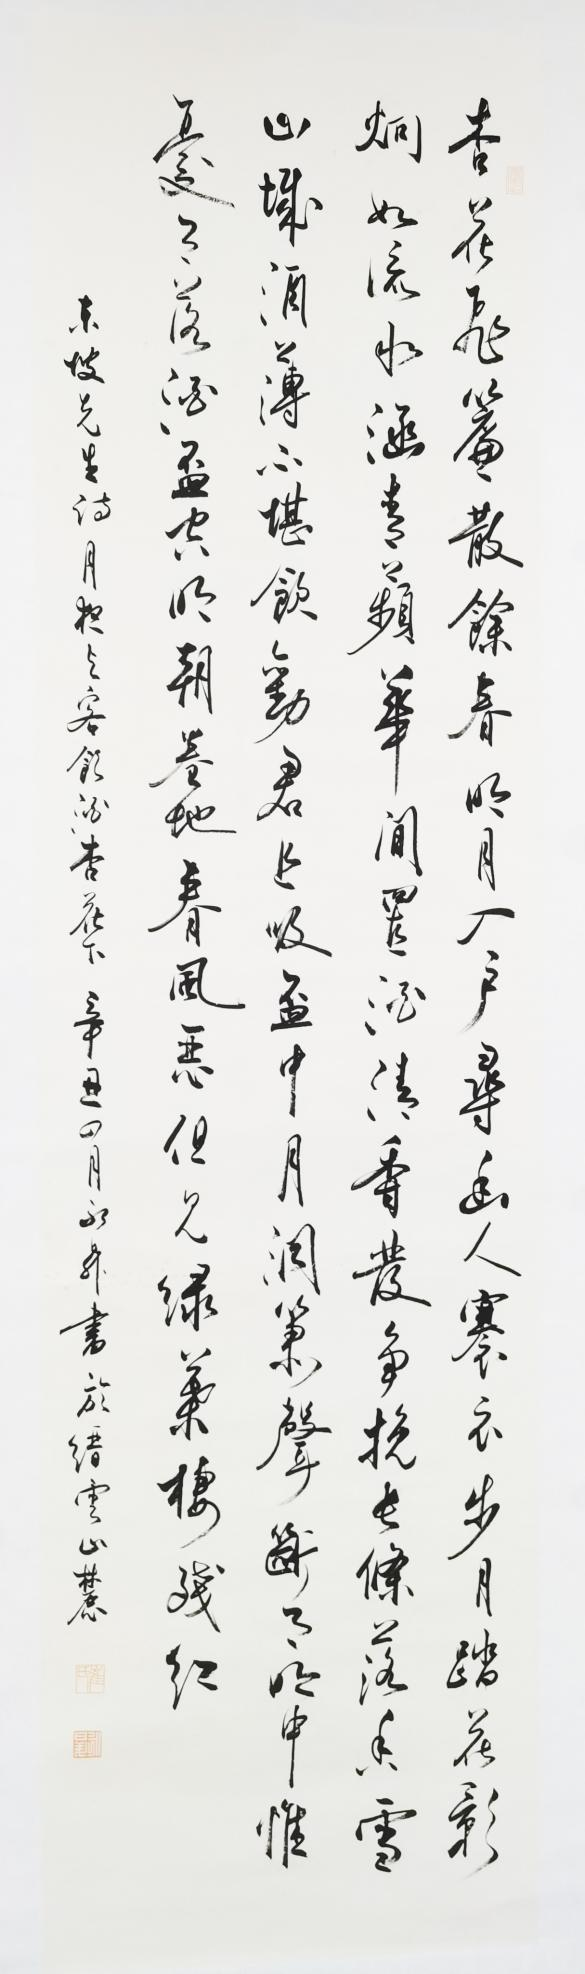 杏花飛簾散餘春明月入戶尋幽人褰衣步月踏花影
炯如流水涵青蘋華間置酒清香發爭挽長條落香雪
山城酒薄不堪飲勸君且吸盃中月洞簫聲斷月明中惟
憂月落酒盃空明朝卷地春風惡但見綠葉棲殘紅
東坡先生詩月夜與客飲酒杏花下 辛丑四月永書於縉雲山麓